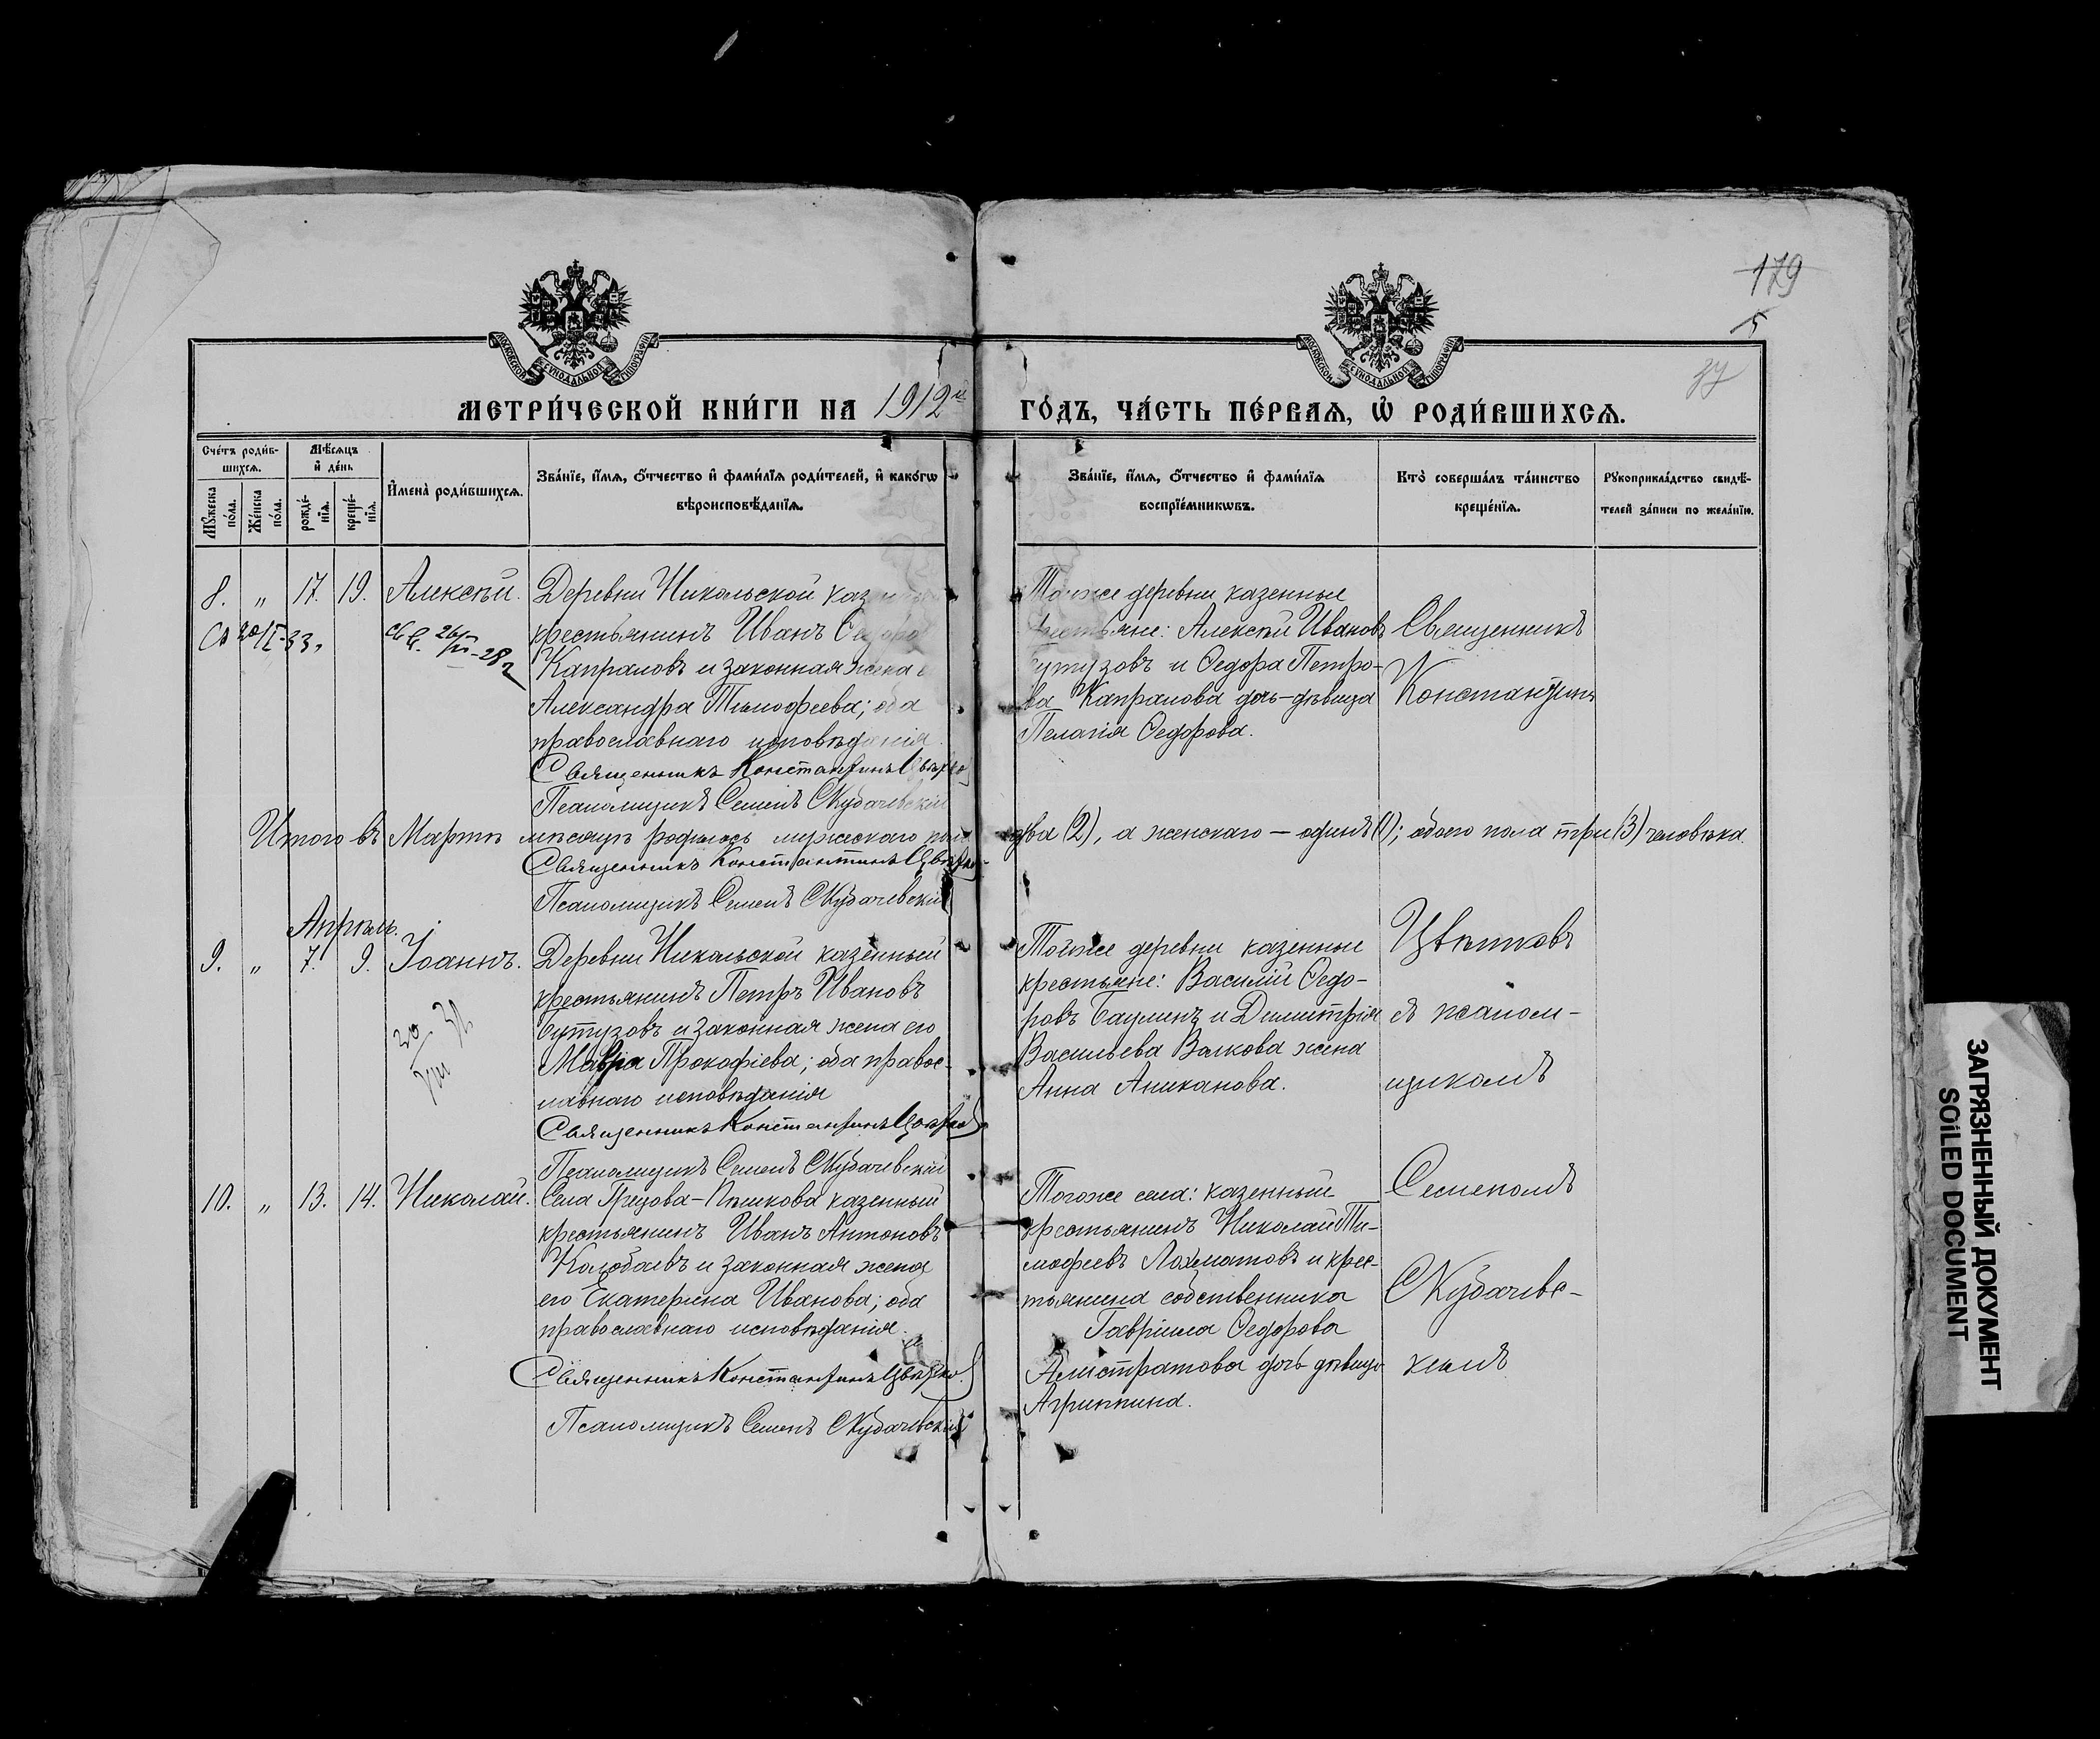 179
5
37
МОСКОВСКОЙ СѴНОДАЛЬНОЙ ТИПОГРАФІИ
МОСКОВСКОЙ СѴНОДАЛЬНОЙ ТИПОГРАФІИ
МЕТРИ́ЧЕСКОЙ КНИ́ГИ НА 1912й ГО́ДЪ, ЧА́СТЬ ПЕ́РВАѦ, Ѡ҆ РОДИ́ВШИХСѦ.
Сче́тъ роди́в-
шихсѧ.
Мѣ́сѧцъ
и҆ де́нь
Мꙋ́жеска
по́ла.
Же́нска
по́ла.
рожде́-
нїѧ.
креще́-
нїѧ.
И҆мена̀ роди́вшихсѧ.
Зва́нїе, и҆́мѧ, ѻ҆́тчество и҆ фами́лїѧ роди́телей, и҆ како́гѡ
вѣроисповѣ́данїѧ.
Зва́нїе, и҆́мѧ, ѻ҆́тчество и҆ фами́лїѧ
воспрїе́мникѡвъ.
Кто̀ соверша́лъ та́инство
креще́нїѧ.
Рꙋкоприкла́дство свидѣ́-
телей за́писи по жела́нїю.
8. „ 17. 19. Алексѣй.
Деревни Никольской
крестьянинъ Иванъ
Капраловъ и законная жена
Александра Тимофеева; оба
православнаго исповѣданія.
Священникъ Константинъ Цвѣтков
Псаломщикъ Семенъ Скубачевскій
Тойже деревни казенные
крестьяне: Алексѣй Ивановъ
Бутузовъ и Ѳедора Петро-
ва Капралова дочь-дѣвица
Пелагія Ѳедорова.
Священникъ
Константинъ
Итого въ Мартѣ мѣсяцѣ родилось мужескаго пола два (2), а женскаго — одинъ (1); обоего пола три (3) человѣка.
Священникъ Константинъ Цвѣтков
Псаломщикъ Семенъ Скубачевскій
Апрѣль.
9. „ 7. 9. Іоаннъ.
Деревни Никольской казенный
крестьянинъ Петръ Ивановъ
Бутузовъ и законная жена его
Мавра Прокофіева; оба правос-
лавнаго исповѣданія
Священникъ Константинъ Цвѣтков
Псаломщикъ Семенъ Скубачевскій
Тойже деревни казенные
крестьяне: Василій Ѳедо-
ровъ Баулинъ и Димитрія
Васильева Волкова жена
Анна Аниканова.
Цвѣтковъ
съ псалом-
щикомъ
10. „ 13. 14. Николай.
казенный
крестьянинъ Иванъ Антоновъ
и законная жена
его Екатерина Иванова; оба
православнаго исповѣданія.
Священникъ Константинъ Цвѣтков
Псаломщикъ Семенъ Скубачевскій
Тогоже села: казенный
крестьянинъ Николай Ти-
мофеевъ Лохматовъ и крес-
тьянина собственника
Гавріила Ѳедорова
дочь дѣвица
Агриппина.
Семеномъ
Скубачевс-
кимъ
ЗАГРЯЗНЕННЫЙ ДОКУМЕНТ
SOiLED DOCUMENT